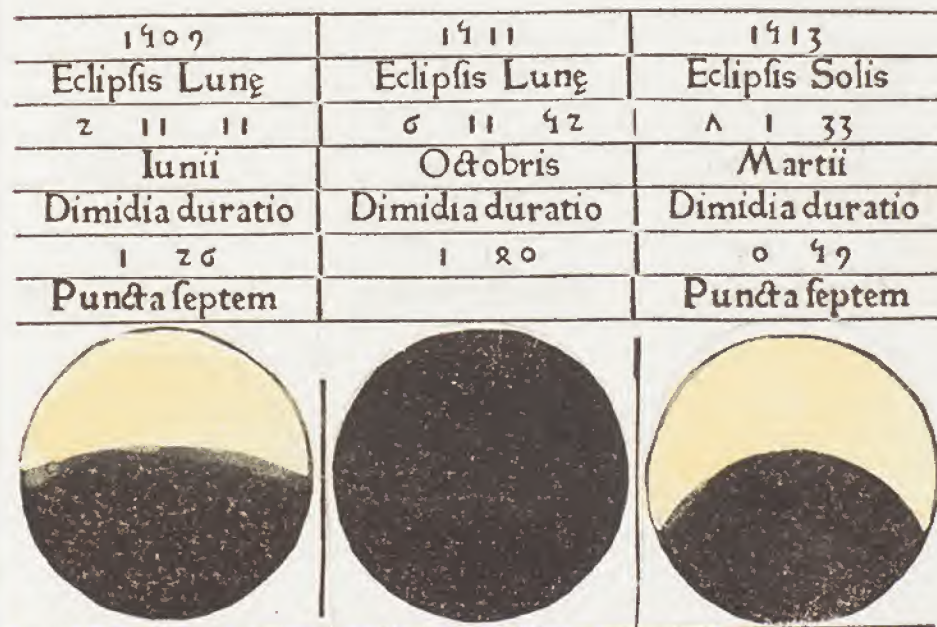 1509 1511 1513
Eclipſis Lunę Eclipſis Lunę Eclipſis Solis
2 11 11 6 11 52 7 1 33
Iunii Octobris Martii
Dimidia duratio Dimidia duratio Dimidia duratio
1 26 1 40 0 59
Puncta ſeptem Puncta ſeptem